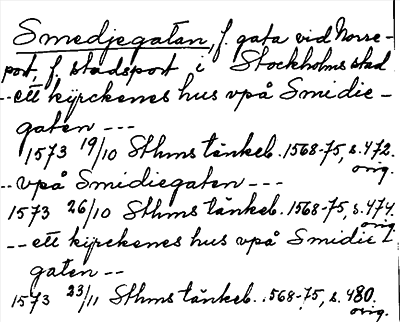 Smedjegatan, f. gata vid Norre-
port, f. stadsport i Stockholms stad
-- ett kyrckenes hus vpå Smidie-
gaten ---
1573 19/10 Sthms tänkeb. 1568-75, s. 472.
orig.
-- vpå Smidiegaten ---
1573 26/10 Sthms tänkeb. 1568-75, s. 474.
orig.
-- ett kyrckenes hus vpå Smidie-
gaten --
1573 23/11 Sthms tänkeb. 1568-75, s. 480.
orig.